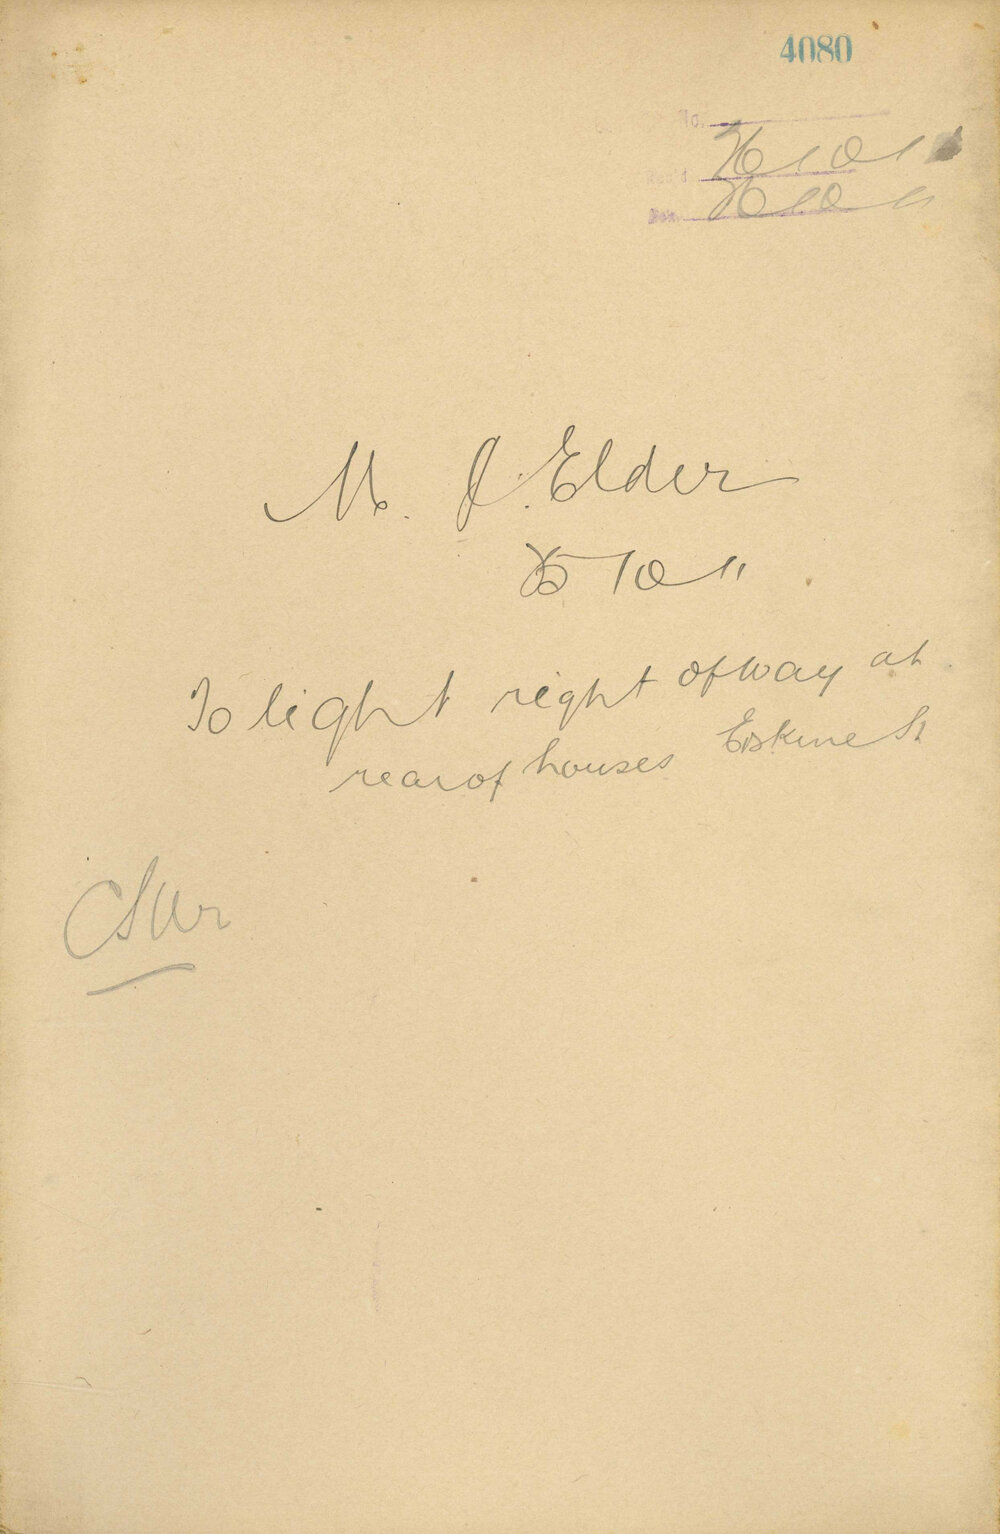 4080
No.
Rec'd 26/10/11
26/10/11
M. J. Elder
25/10/11
To light right of way at
rear of houses Erskine St